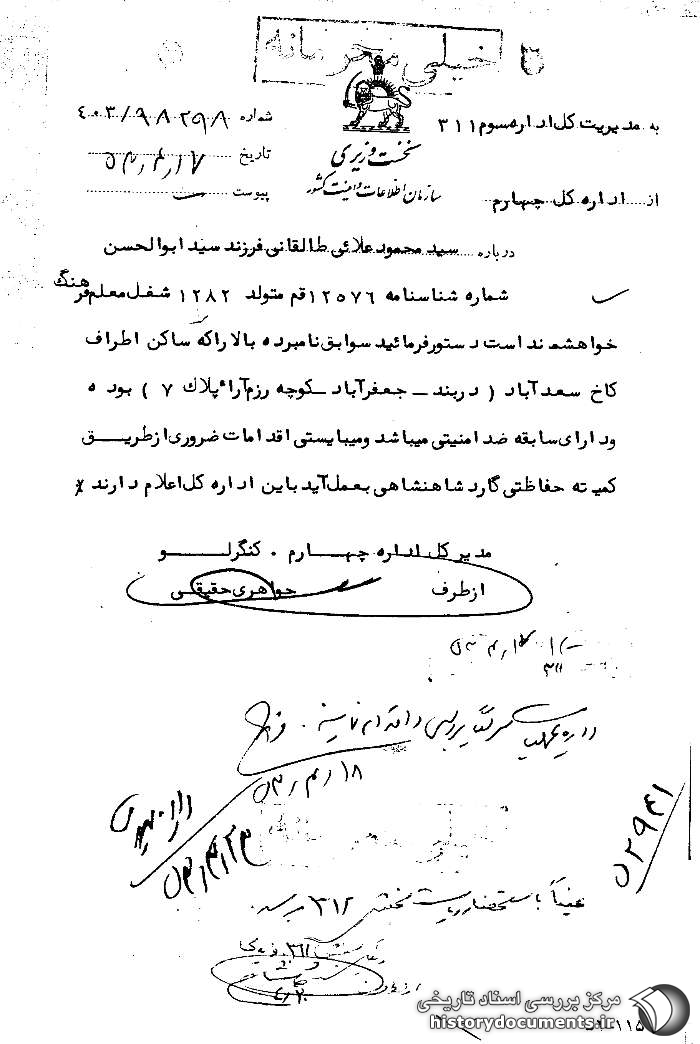 خیلی محرمانه
به مدیریت کل اداره سوم ۳۱۱
شماره ۴۰۳/۹۸۲۹۸
نخست وزیری
تاریخ ۵۳/۴/۱۷
از اداره کل چهارم
سازمان اطلاعات و امنیت کشور
پیوست
درباره سید محمود علائی طالقانی فرزند سید ابوالحسن
شماره شناسنامه ۱۲۵۷۶ قم متولد ۱۲۸۲ شغل معلم فرهنگ
خواهشمند است دستور فرمائید سوابق نامبرده بالا را که ساکن اطراف
کاخ سعدآباد ( دربند - جعفرآباد - کوچه رزم آرا پلاک ۷ ) بوده
و دارای سابقه ضد امنیتی میباشد و میبایستی اقدامات ضروری از طریق
کمیته حفاظتی گارد شاهنشاهی بعمل آید باین اداره کل اعلام دارند
مدیر کل اداره چهارم . کنگرلو
از طرف جواهری حقیقی
۳۱۱
۵۳/۴/۱۸
۵۳/۴/۲۳
۵۲۹۴۱
خیلی محرمانه
عیناً باستحضار ریاست بخش ۳۱۲ برسد
۴/۲۰
مرکز بررسی اسناد تاریخی
historydocuments.ir